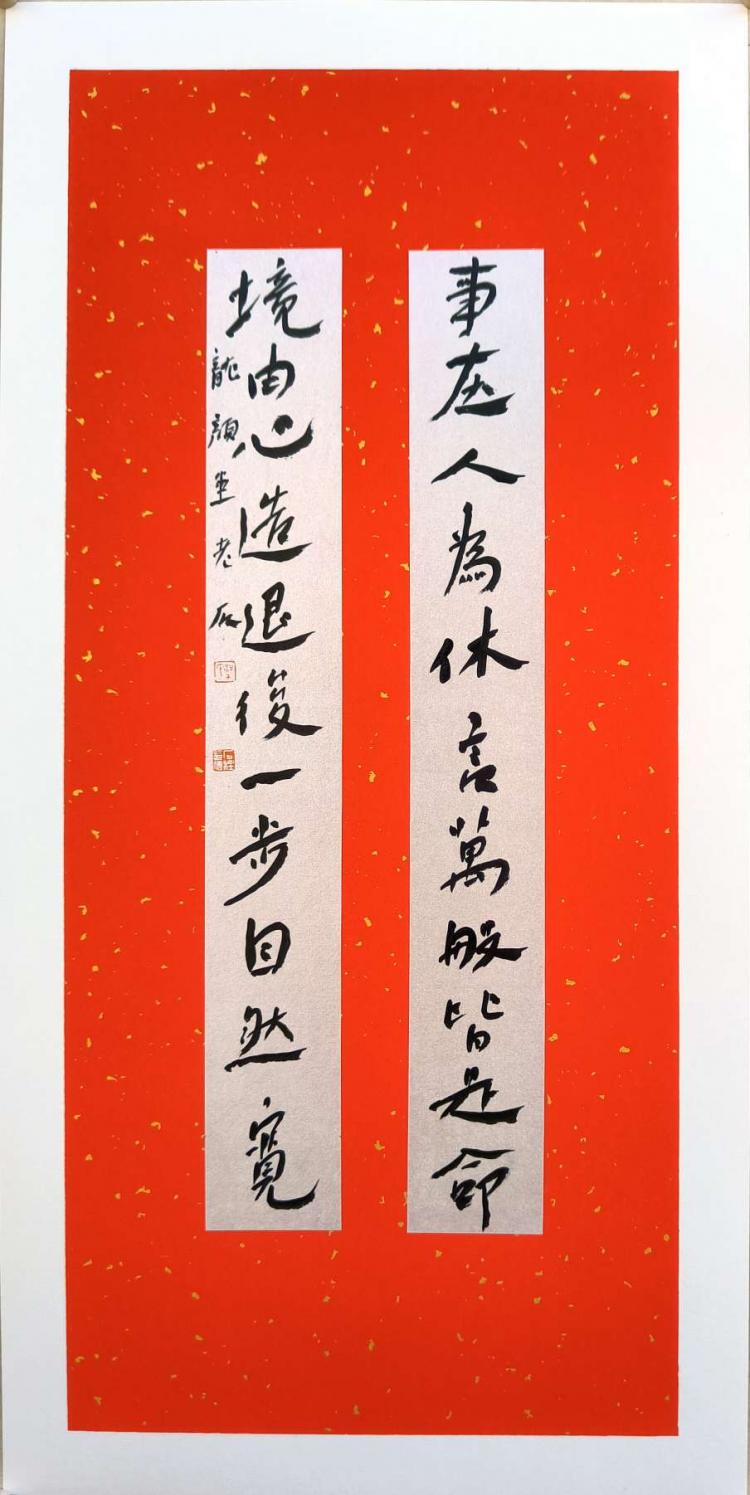 事在人為休言萬般皆是命
境由心造退後一步自然寬
龍顏堂老石